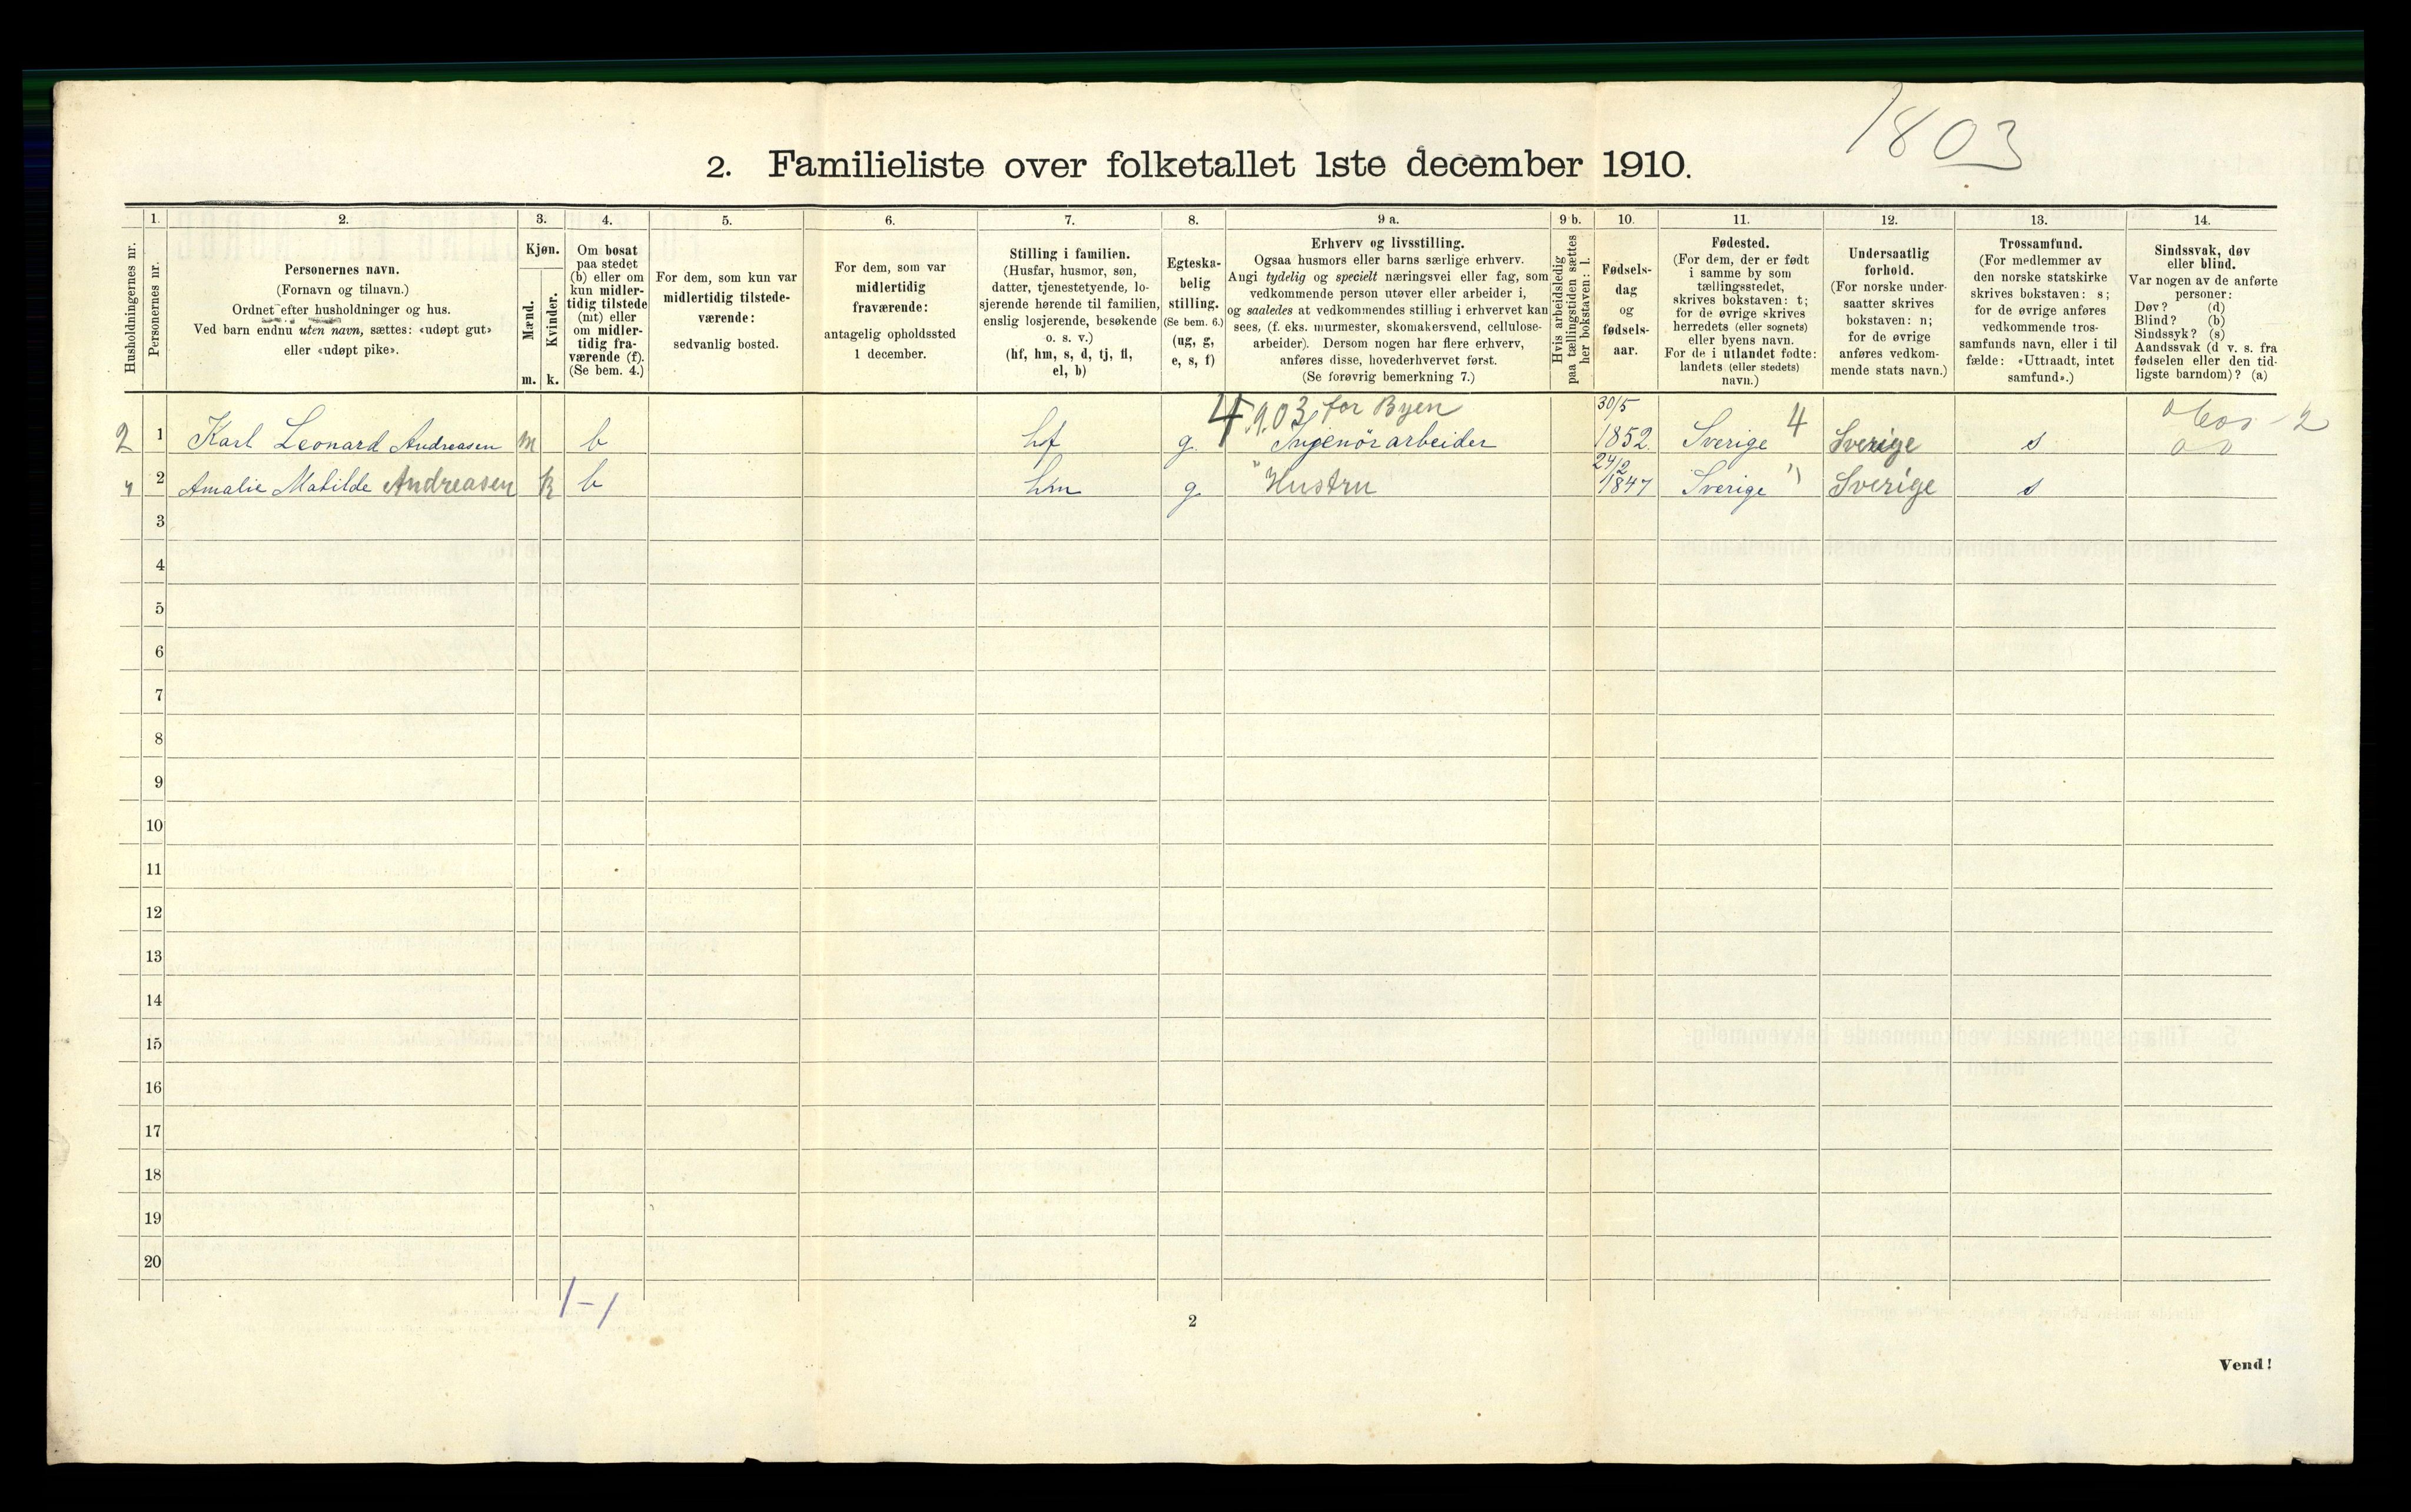 1803
2. Familieliste over folketallet 1ste december 1910.
Husholdningernes nr.
1.
Personernes nr.
2.
Personernes navn.
(Fornavn og tilnavn.)
Ordnet efter husholdninger og hus.
Ved barn endnu uten navn, sættes: «udøpt gut»
eller «udøpt pike».
3.
Kjøn.
Mænd.
Kvinder.
m. k.
4.
Om bosat
paa stedet
(b) eller om
kun midler-
tidig tilstede
(mt) eller
om midler-
tidig fra-
værende (f).
(Se bem. 4.)
5.
For dem, som kun var
midlertidig tilstede-
værende:
sedvanlig bosted.
6.
For dem, som var
midlertidig
fraværende:
antagelig opholdssted
1 december.
7.
Stilling i familien.
(Husfar, husmor, søn,
datter, tjenestetyende, lo-
sjerende hørende til familien,
enslig losjerende, besøkende
o. s. v.)
(hf, hm, s, d, tj, fl,
el, b)
8.
Egteska-
belig
stilling.
(Se bem. 6.)
(ug, g,
e, s, f)
9 a.
Erhverv og livsstilling.
Ogsaa husmors eller barns særlige erhverv.
Angi tydelig og specielt næringsvei eller fag, som
vedkommende person utøver eller arbeider i,
og saaledes at vedkommendes stilling i erhvervet kan
sees, (f. eks. murmester, skomakersvend, cellulose-
arbeider). Dersom nogen har flere erhverv,
anføres disse, hovederhvervet først.
(Se forøvrig bemerkning 7.)
9 b.
Hvis arbeidsledig
paa tællingstiden sættes
her bokstaven: l.
10.
Fødsels-
dag
og
fødsels-
aar.
11.
Fødested.
(For dem, der er født
i samme by som
tællingsstedet,
skrives bokstaven: t;
for de øvrige skrives
herredets (eller sognets)
eller byens navn.
For de i utlandet fødte:
landets (eller stedets)
navn.)
12.
Undersaatlig
forhold.
(For norske under-
saatter skrives
bokstaven: n;
for de øvrige
anføres vedkom-
mende stats navn.)
13.
Trossamfund.
(For medlemmer av
den norske statskirke
skrives bokstaven: s;
for de øvrige anføres
vedkommende tros-
samfunds navn, eller i til
fælde: «Uttraadt, intet
samfund».)
14.
Sindssvak, døv
eller blind.
Var nogen av de anførte
personer:
Døv? (d)
Blind? (b)
Sindssyk? (s)
Aandssvak (d v. s. fra
fødselen eller den tid-
ligste barndom)? (a)
4.903 for Byen
2 1 Karl Leonard Andreasen m b hf g. Ingenörarbeider 30/5 1852. Sverige 4 Sverige s
2 Amalie Matilde Andreasen k b hm g. Hustru 24/2 1847 Sverige Sverige s
3
4
5
6
7
8
9
10
11
12
13
14
15
16
17
18
19
20
1-1
2
Vend!